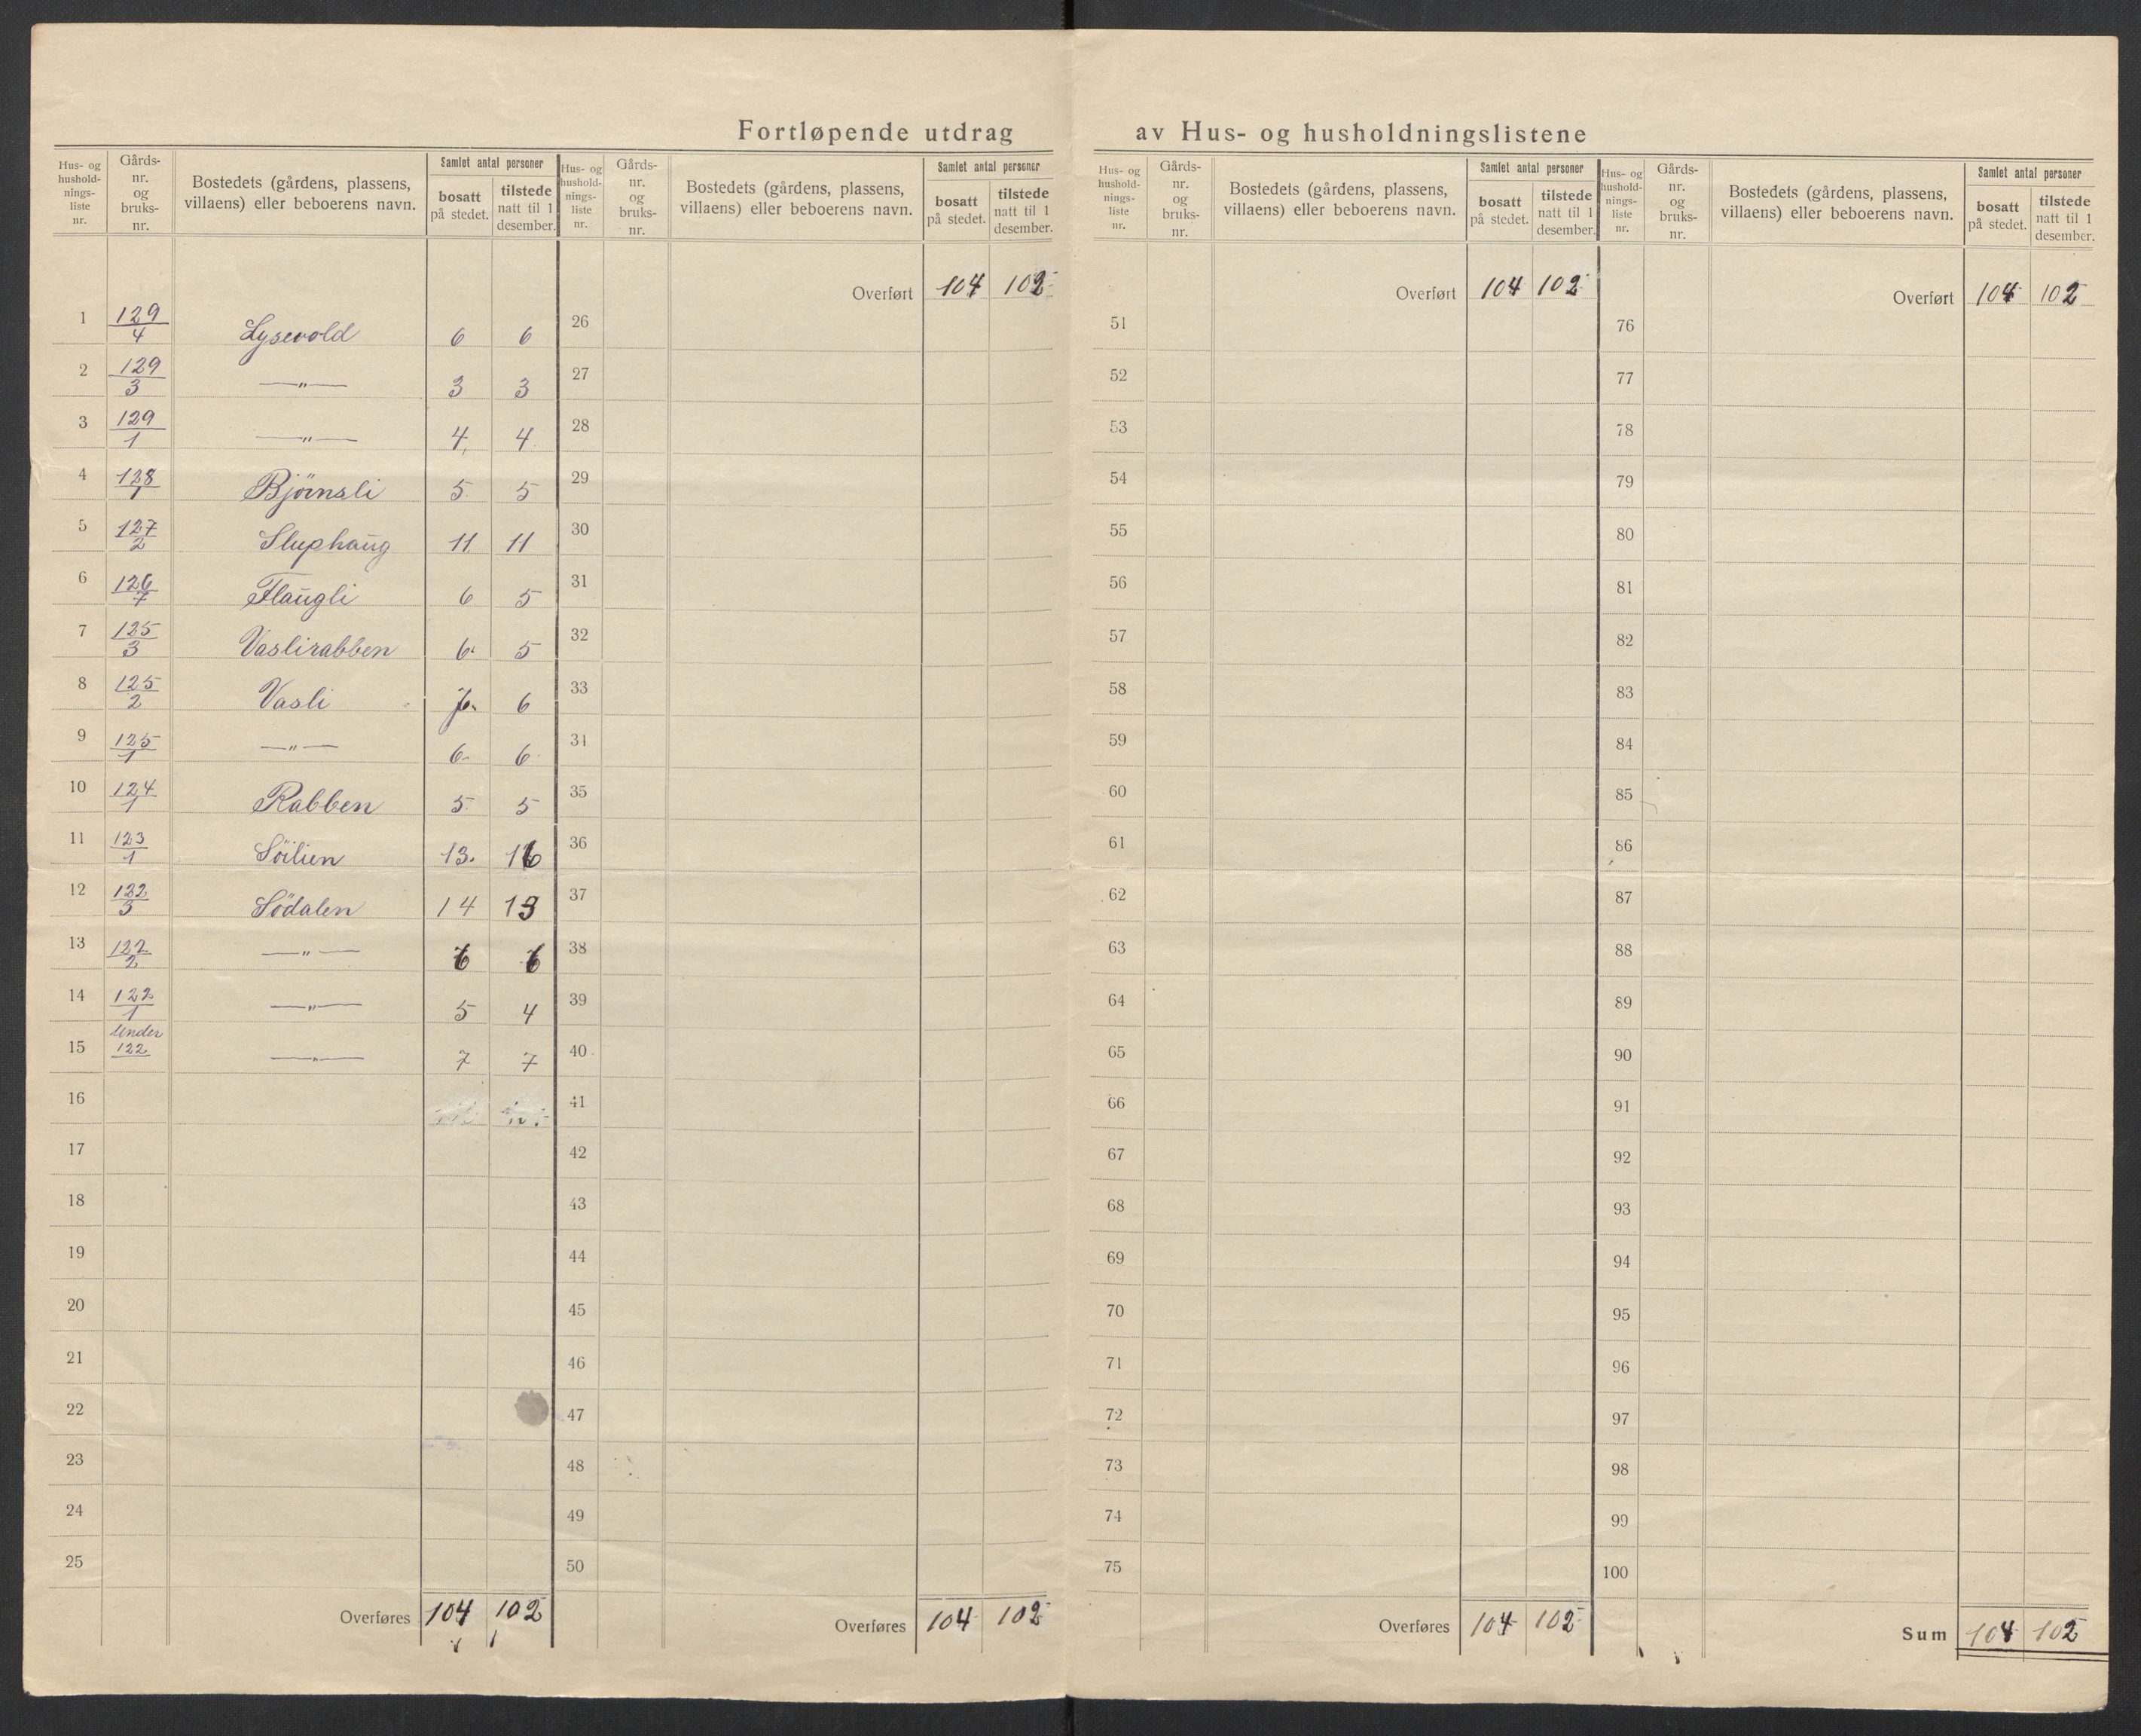 Fortløpende utdrag av Hus- og husholdningslistene
Hus- og hushold- nings- liste nr. | Gårds- nr. og bruks- nr. | Bostedets (gårdens, plassens, villaens) eller beboerens navn. | Samlet antal personer | bosatt på stedet. | tilstede natt til 1 desember.
1 129/4 Lysevold 6 6
2 129/3 —"— 3 3
3 129/1 —"— 4 4
4 128/1 Bjørnsli 5 5
5 127/2 Sluphaug 11 11
6 126/7 Flaugli 6 5
7 125/3 Vaslirabben 6 5
8 125/2 Vasli 6
9 125/1 —"— 6 6
10 124/1 Rabben 5 5
11 123/1 Söilien 13 16
12 122/3 Södalen 14 13
13 122/2 —"— 6 6
14 122/1 —"— 5 4
15 Under 122 —"— 7 7
16
17
18
19
20
21
22
23
24
25
Overføres 104 102
Hus- og hushold- nings- liste nr. | Gårds- nr. og bruks- nr. | Bostedets (gårdens, plassens, villaens) eller beboerens navn. | Samlet antal personer | bosatt på stedet. | tilstede natt til 1 desember.
Overført 104 102
26
27
28
29
30
31
32
33
34
35
36
37
38
39
40
41
42
43
44
45
46
47
48
49
50
Overføres 104 102
Hus- og hushold- nings- liste nr. | Gårds- nr. og bruks- nr. | Bostedets (gårdens, plassens, villaens) eller beboerens navn. | Samlet antal personer | bosatt på stedet. | tilstede natt til 1 desember.
Overført 104 102
51
52
53
54
55
56
57
58
59
60
61
62
63
64
65
66
67
68
69
70
71
72
73
74
75
Overføres 104 102
Hus- og hushold- nings- liste nr. | Gårds- nr. og bruks- nr. | Bostedets (gårdens, plassens, villaens) eller beboerens navn. | Samlet antal personer | bosatt på stedet. | tilstede natt til 1 desember.
Overført 104 102
76
77
78
79
80
81
82
83
84
85
86
87
88
89
90
91
92
93
94
95
96
97
98
99
100
Sum 104 102